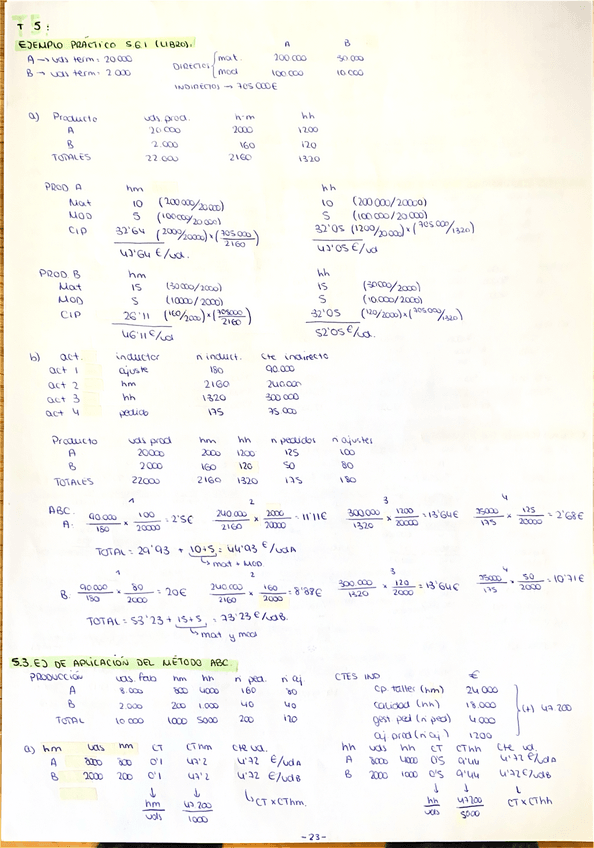 T 5:
EJEMPLO PRÁCTICO 5.6.1 (LIBRO):
A B
A → uds term = 20000
B → uds term = 2000
DIRECTOS { mat. 200000 30000
mod 100000 10000
INDIRECTOS → 705000€
a) Producto uds prod. h·m hh
A 20.000 2000 1200
B 2.000 160 120
TOTALES 22000 2160 1320
PROD A hm hh
Mat 10 (200000/20000) 10 (200000/20000)
MOD 5 (100000/20000) 5 (100000/20000)
CIP 32'64 (2000/20000)×(705000/2160) 32'05 (1200/20000)×(705000/1320)
47'64 €/ud. 47'05 €/ud
PROD B hm hh
Mat 15 (30000/2000) 15 (30000/2000)
MOD 5 (10000/2000) 5 (10.000/2000)
CIP 26'11 (160/2000)×(705000/2160) 32'05 (120/2000)×(705000/1320)
46'11 €/ud 52'05€/ud.
b) act. inductor n induct. Cte indirecto
act 1 ajuste 180 90.000
act 2 hm 2160 240.000
act 3 hh 1320 300000
act 4 pedido 175 75.000
Producto uds prod hm hh n pedidos n ajustes
A 20000 2000 1200 125 100
B 2000 160 120 50 80
TOTALES 22000 2160 1320 175 180
ABC.
A: 1 90.000/180 × 100/20000 = 2'5€ 2 240.000/2160 × 2000/20000 = 11'11€ 3 300.000/1320 × 1200/20000 = 13'64€ 4 75000/175 × 125/20000 = 2'68€
TOTAL = 29'93 + 10+5 = 44'93 €/udA
↳ mat + MOD.
B. 1 90.000/180 × 80/2000 = 20€ 2 240.000/2160 × 160/2000 = 8'88€ 3 300.000/1320 × 120/2000 = 13'64€ 4 75000/175 × 50/2000 = 10'71€
TOTAL = 53'23 + 15+5 = 73'23 €/udB.
↳ mat y mod
5.3. EJ DE APLICACIÓN DEL MÉTODO ABC.
PRODUCCIÓN uds. fab hm hh n ped. n aj. CTES IND €
A 8.000 800 4000 160 80 cp. taller (hm) 24.000
B 2.000 200 1.000 40 40 calidad (hm) 18.000
TOTAL 10000 1000 5000 200 120 gest ped (n ped) 4.000
aj prod (n aj) 1200
(+) 47.200
a) hm uds hm CT CThm Cte ud. hh uds hh CT CThh Cte ud.
A 8000 800 0'1 47'2 4'72 €/udA A 8000 4000 0'5 9'44 4'72 €/udA
B 2000 200 0'1 47'2 4'72 €/udB B 2000 1000 0'5 9'44 4'72€/udB
↓ ↓ ↳ CT × CThm. ↓ ↓ ↓
hm/uds 47.200/1000 hh/uds 47200/5000 CT × CThh
-23-